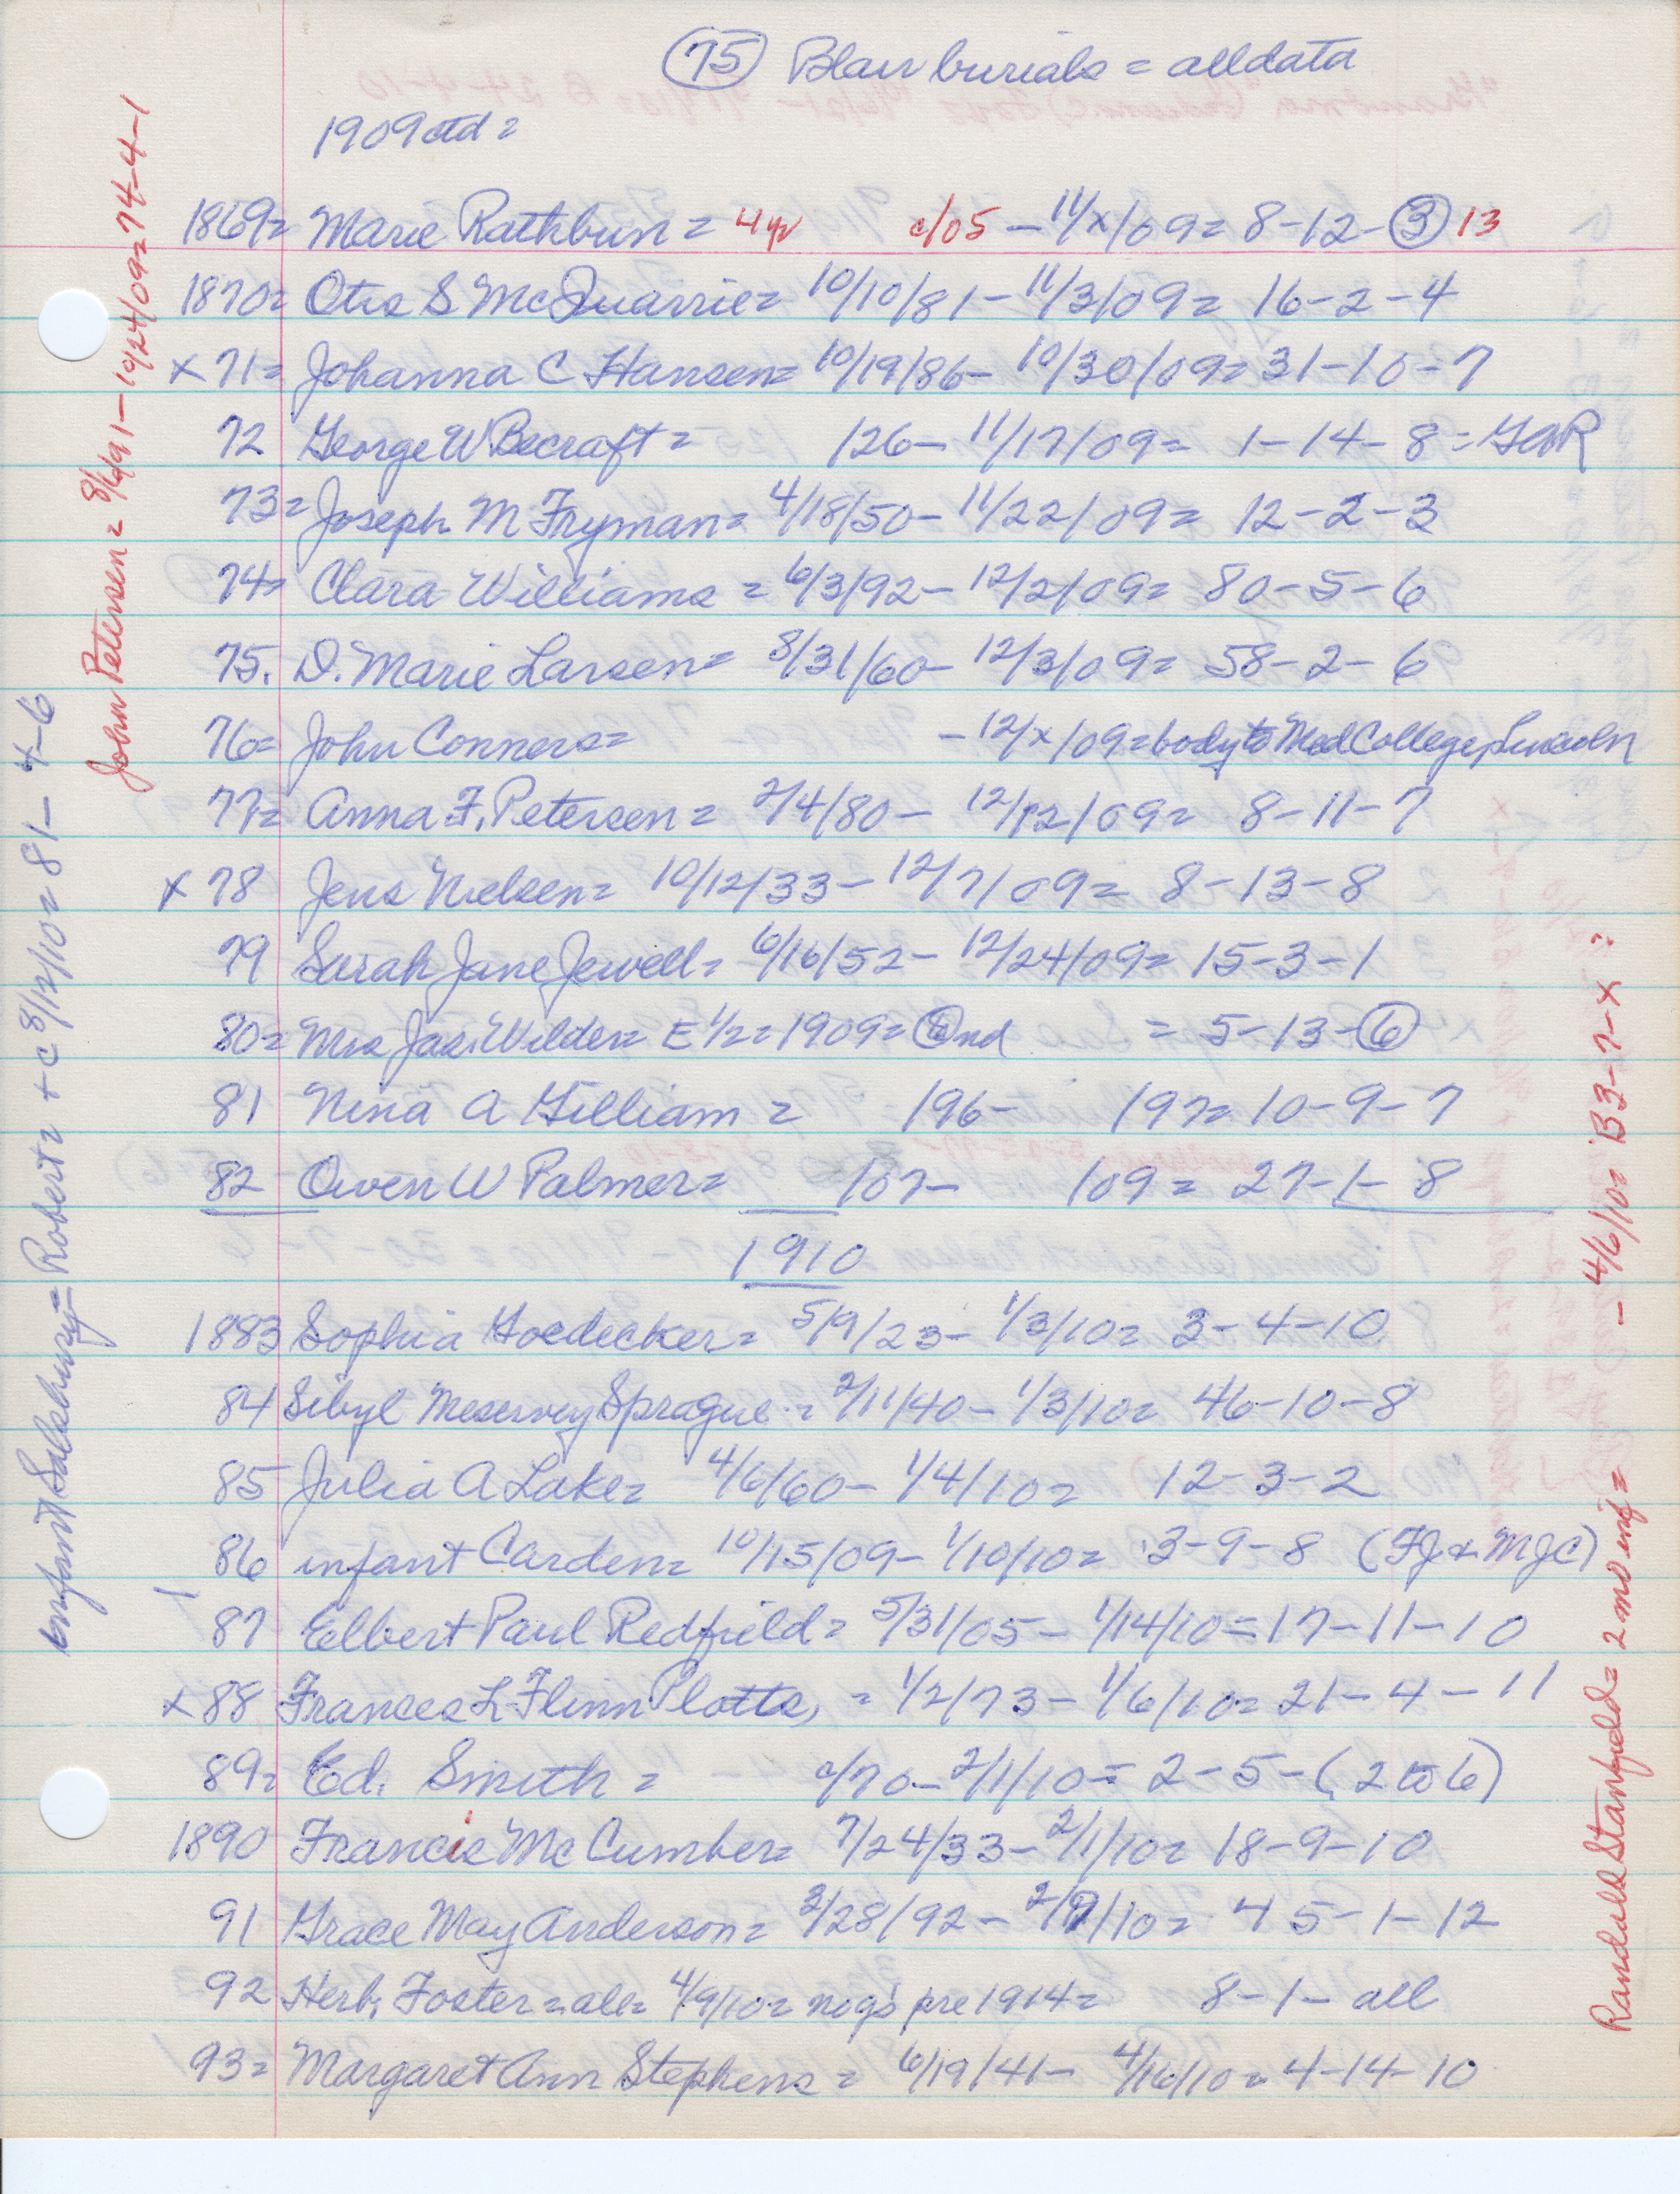 75 Blair burials = all data
1909 ctd =
1869= Marie Rathbun = 4 yr c/05 - 11/x/09= 8-12-3 13
1870= Otis S McQuarrie= 10/10/81- 11/3/09= 16-2-4
x 71= Johanna C Hansen= 10/19/86- 10/30/09= 31-10-7
72 George W Becraft = /26- 11/17/09= 1-14-8 = GAR
73= Joseph M Fryman= 4/18/50- 11/22/09= 12-2-3
74= Clara Williams = 6/3/92- 12/2/09= 80-5-6
75. D. Marie Larsen= 8/31/60- 12/3/09= 58-2-6
76= John Conners= - 12/x/09=body to Med College, Lincoln
77= Anna F. Petersen = 2/4/80- 12/12/09= 8-11-7
x 78 Jens Nielsen= 10/12/33- 12/7/09= 8-13-8
79 Sarah Jane Jewell= 6/16/52- 12/24/09= 15-3-1
80= Mrs Jas. Wilder= E 1/2= 1909= nd = 5-13-6
81 Nina A Gilliam = /96- /97= 10-9-7
82 Owen W Palmer= /07- /09 = 27-1-8
1910
1883 Sophia Goedecker= 5/9/23- 1/3/10= 3-4-10
84 Sibyl Meservey Sprague = 2/11/40- 1/3/10= 46-10-8
85 Julia A Lake= 4/6/60- 1/4/10= 12-3-2
86 infant Carden= 10/15/09- 1/10/10= 3-9-8 (FJ & MJC)
87 Elbert Paul Redfield= 5/31/05- 1/14/10=17-11-10
x 88 Frances L Flinn Plotts, = 1/2/73- 1/6/10= 21-4-11
89= Ed. Smith = c/70- 2/1/10= 2-5-(2 to 6)
1890 Francis McCumber= 7/24/33- 2/1/10= 18-9-10
91 Grace May Anderson= 3/28/92- 2/9/10= 45-1-12
92 Herb. Foster= ale= 4/9/10= no gs pre 1914= 8-1-all
93= Margaret Ann Stephens = 6/19/41- 4/16/10= 4-14-10
John Petersen= 8/6/91-10/24/09=74-4-1
infant Salsbury= Robert= + c 8/12/10= 81-4-6
Randall Stanfield= 2 mo inf= - 4/6/10= B3-7-x =